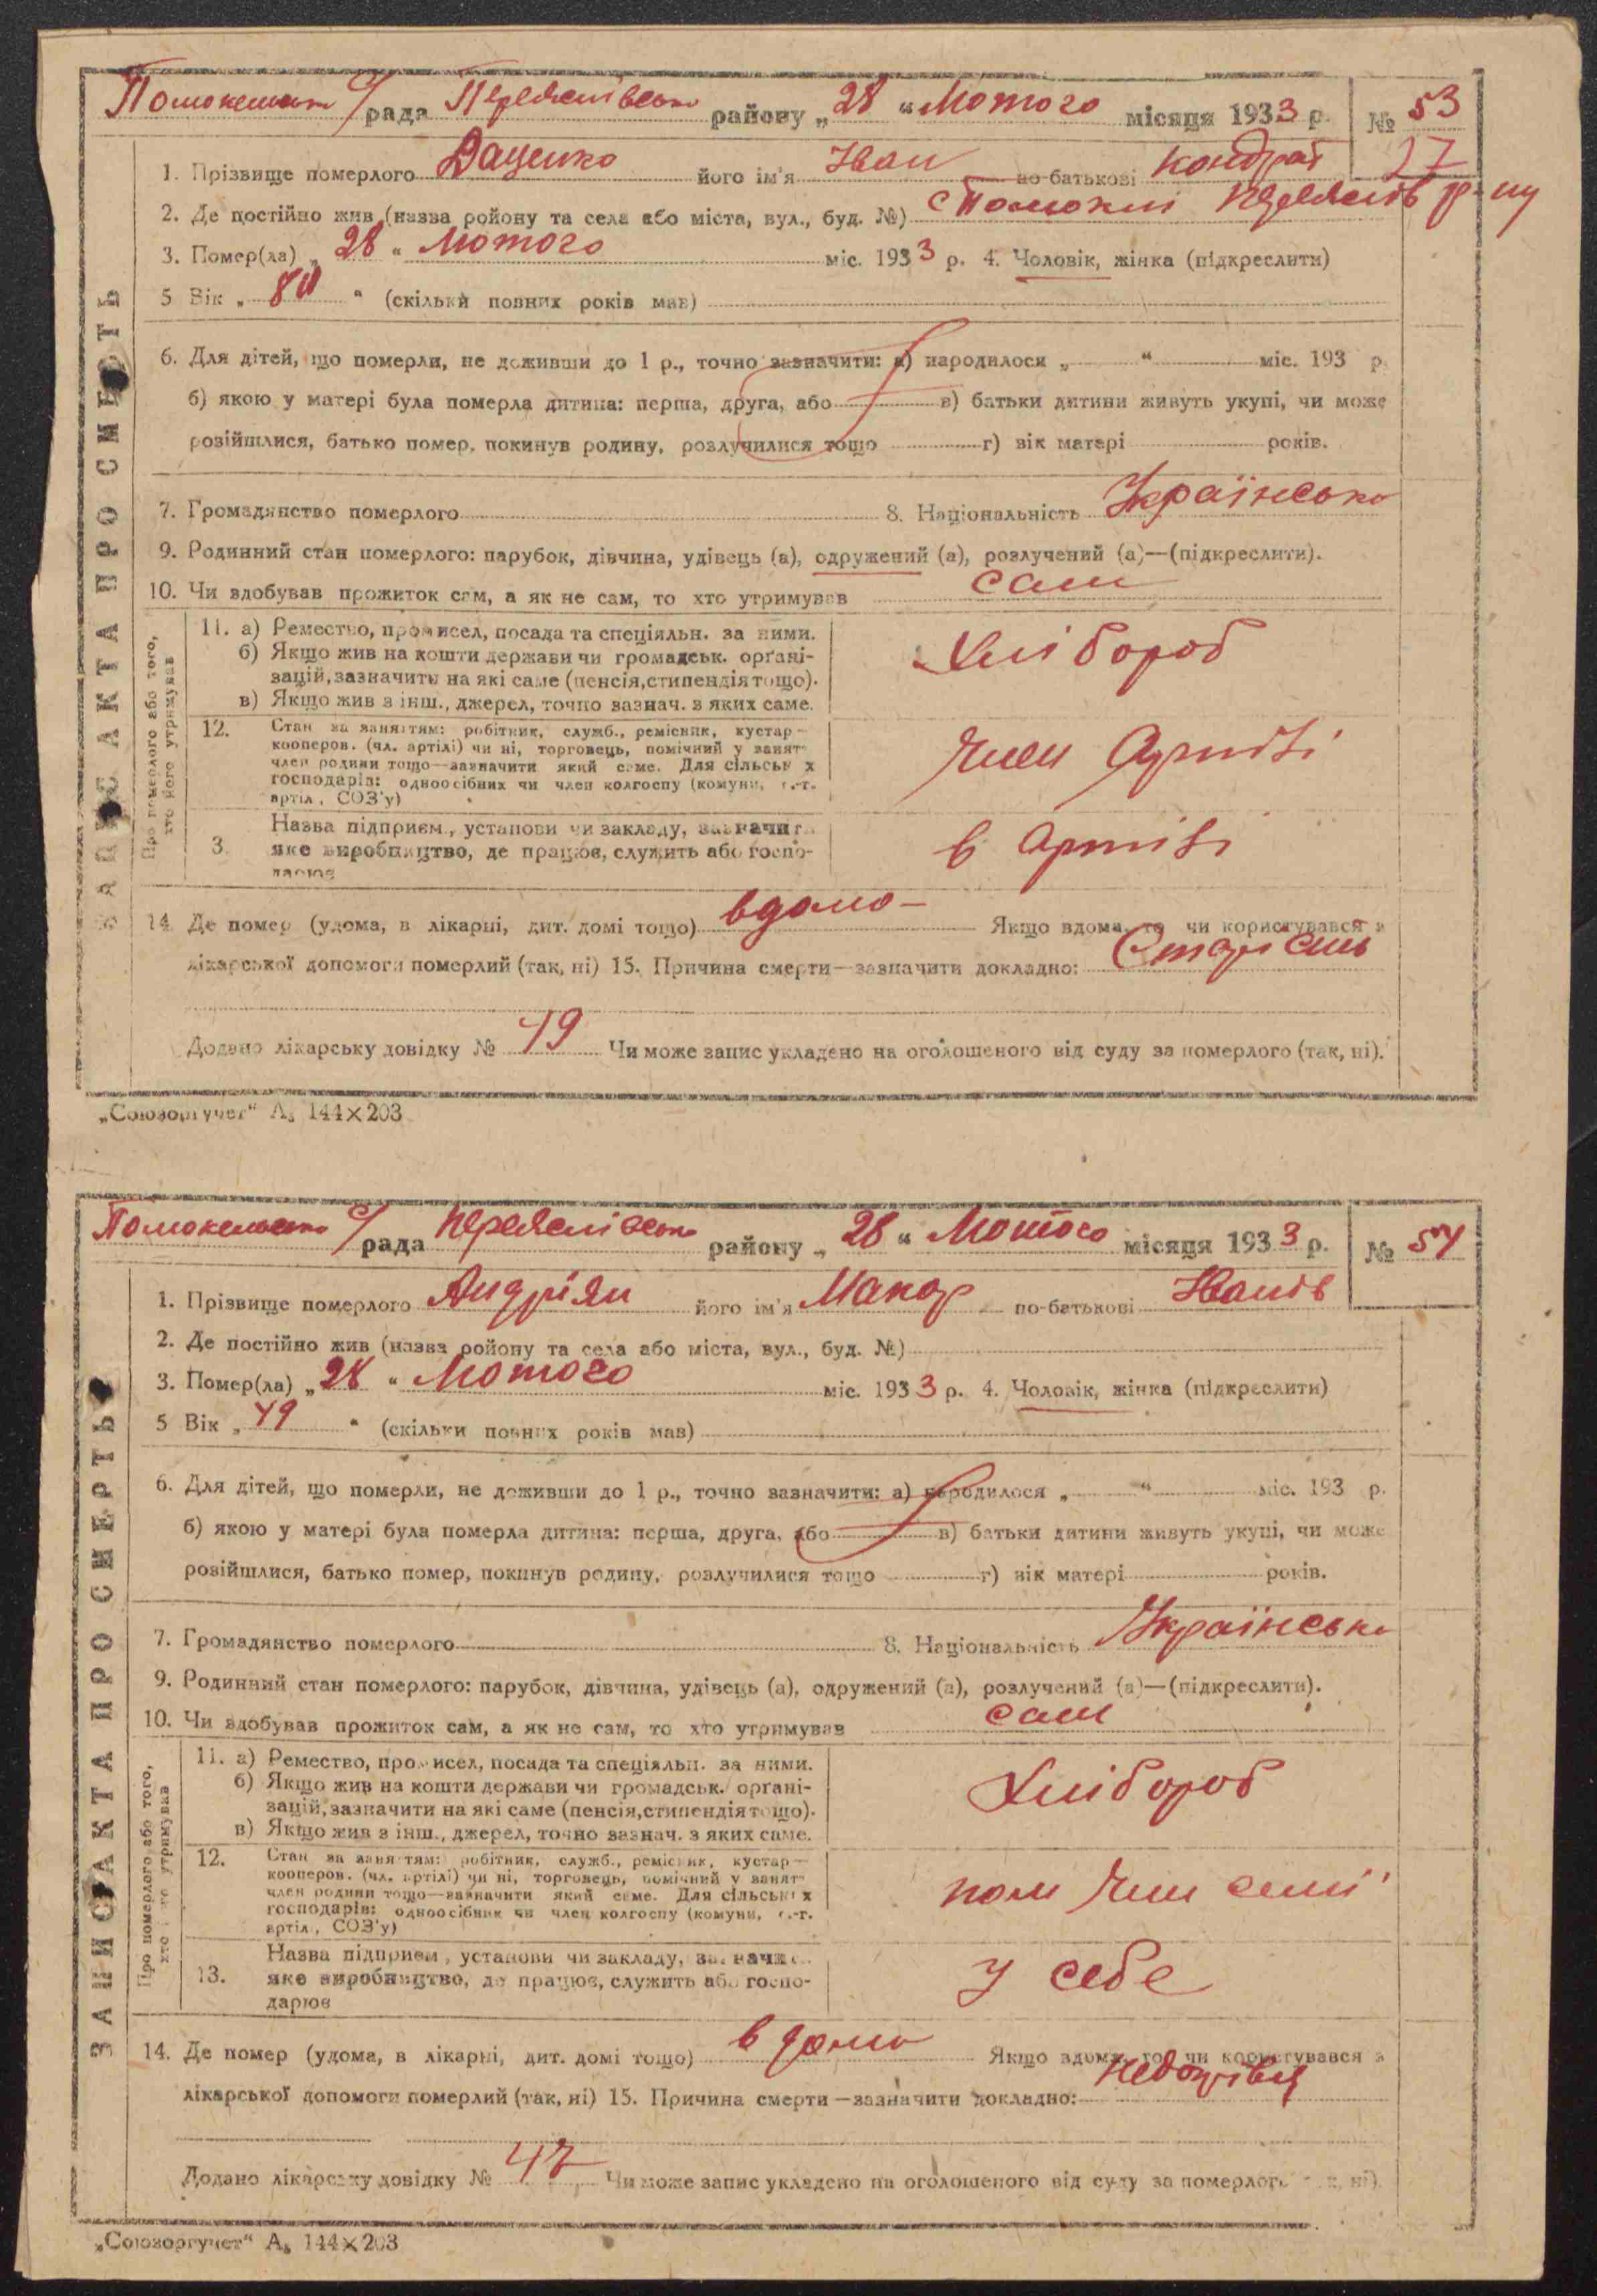 рада Переяслівсько району „ 28 “ Лютого місяця 1933 р. № 53
27
1. Прізвище померлого Даценко його ім'я Іван по-батькові Кондрат
2. Де постійно жив (назва ройону та села або міста, вул., буд. №) с Помоклі Переяслів р-ну
3. Помер(ла) „ 28 “ Лютого міс. 1933 р. 4. Чоловік, жінка (підкреслити)
5 Вік „ 80 “ (скільки повних років мав)
6. Для дітей, що померли, не доживши до 1 р., точно зазначити: а) народилося „ “ міс. 193 р.
б) якою у матері була померла дитина: перша, друга, або в) батьки дитини живуть укупі, чи може
розійшлися, батько помер, покинув родину, розлучилися тощо г) вік матері років.
7. Громадянство померлого 8. Національність Українсько
9. Родинний стан померлого: парубок, дівчина, удівець (а), одружений (а), розлучений (а)—(підкреслити).
10. Чи здобував прожиток сам, а як не сам, то хто утримував сам
ЗАПИС АКТА ПРО СМЕРТЬ
Про померлого або того,
хто його утримував
11. а) Ремество, промисел, посада та спеціяльн. за ними.
б) Якщо жив на кошти держави чи громадськ. орґані-
зацій, зазначити на які саме (пенсія, стипендія тощо).
в) Якщо жив з інш., джерел, точно зазнач. з яких саме.
Хлібороб
12. Стан за заняттям: робітник, служб., ремісник, кустар—
кооперов. (чл. артілі) чи ні, торговець, помічний у занят-
член родини тощо—зазначити який саме. Для сільськ х
господарів: одноосібник чи член колгоспу (комуни, с.-г.
артіл, СОЗ'у)
член Артілі
3. Назва підприєм., установи чи закладу, зазначит
яке виробництво, де працює, служить або госпо-
дарює
в Артілі
14. Де помер (удома, в лікарні, дит. домі тощо) вдома Якщо вдома, то чи користувався з
лікарської допомоги померлий (так, ні) 15. Причина смерти—зазначити докладно: Старість
Додано лікарську довідку № 49 Чи може запис укладено на оголошеного від суду за померлого (так, ні).
„Союзоргучет“ А₅ 144×203
рада Переяслівсько району „ 28 “ Лютого місяця 1933 р. № 54
1. Прізвище померлого Андріян його ім'я Макар по-батькові Іванів
2. Де постійно жив (назва ройону та села або міста, вул., буд. №)
3. Помер(ла) „ 28 “ Лютого міс. 1933 р. 4. Чоловік, жінка (підкреслити)
5 Вік „ 49 “ (скільки повних років мав)
6. Для дітей, що померли, не доживши до 1 р., точно зазначити: а) народилося „ “ міс. 193 р.
б) якою у матері була померла дитина: перша, друга, або в) батьки дитини живуть укупі, чи може
розійшлися, батько помер, покинув родину, розлучилися тощо г) вік матері років.
7. Громадянство померлого 8. Національність Українсько
9. Родинний стан померлого: парубок, дівчина, удівець (а), одружений (а), розлучений (а)—(підкреслити).
10. Чи здобував прожиток сам, а як не сам, то хто утримував сам
ЗАПИС АКТА ПРО СМЕРТЬ
Про померлого або того,
хто його утримував
11. а) Ремество, промисел, посада та спеціяльн. за ними.
б) Якщо жив на кошти держави чи громадськ. орґані-
зацій, зазначити на які саме (пенсія, стипендія тощо).
в) Якщо жив з інш., джерел, точно зазнач. з яких саме.
Хлібороб
12. Стан за заняттям: робітник, служб., ремісник, кустар—
кооперов. (чл. артілі) чи ні, торговець, помічний у занят-
член родини тощо—зазначити який саме. Для сільськ х
господарів: одноосібник чи член колгоспу (комуни, с.-г.
артіл, СОЗ'у)
член семї
13. Назва підприєм, установи чи закладу, зазначит
яке виробництво, де працює, служить або госпо-
дарює
у себе
14. Де помер (удома, в лікарні, дит. домі тощо) в дома Якщо вдома, то чи користувався з
лікарської допомоги померлий (так, ні) 15. Причина смерти—зазначити докладно:
Додано лікарську довідку № 47 Чи може запис укладено на оголошеного від суду за померлого ні).
„Союзоргучет“ А₅ 144×203